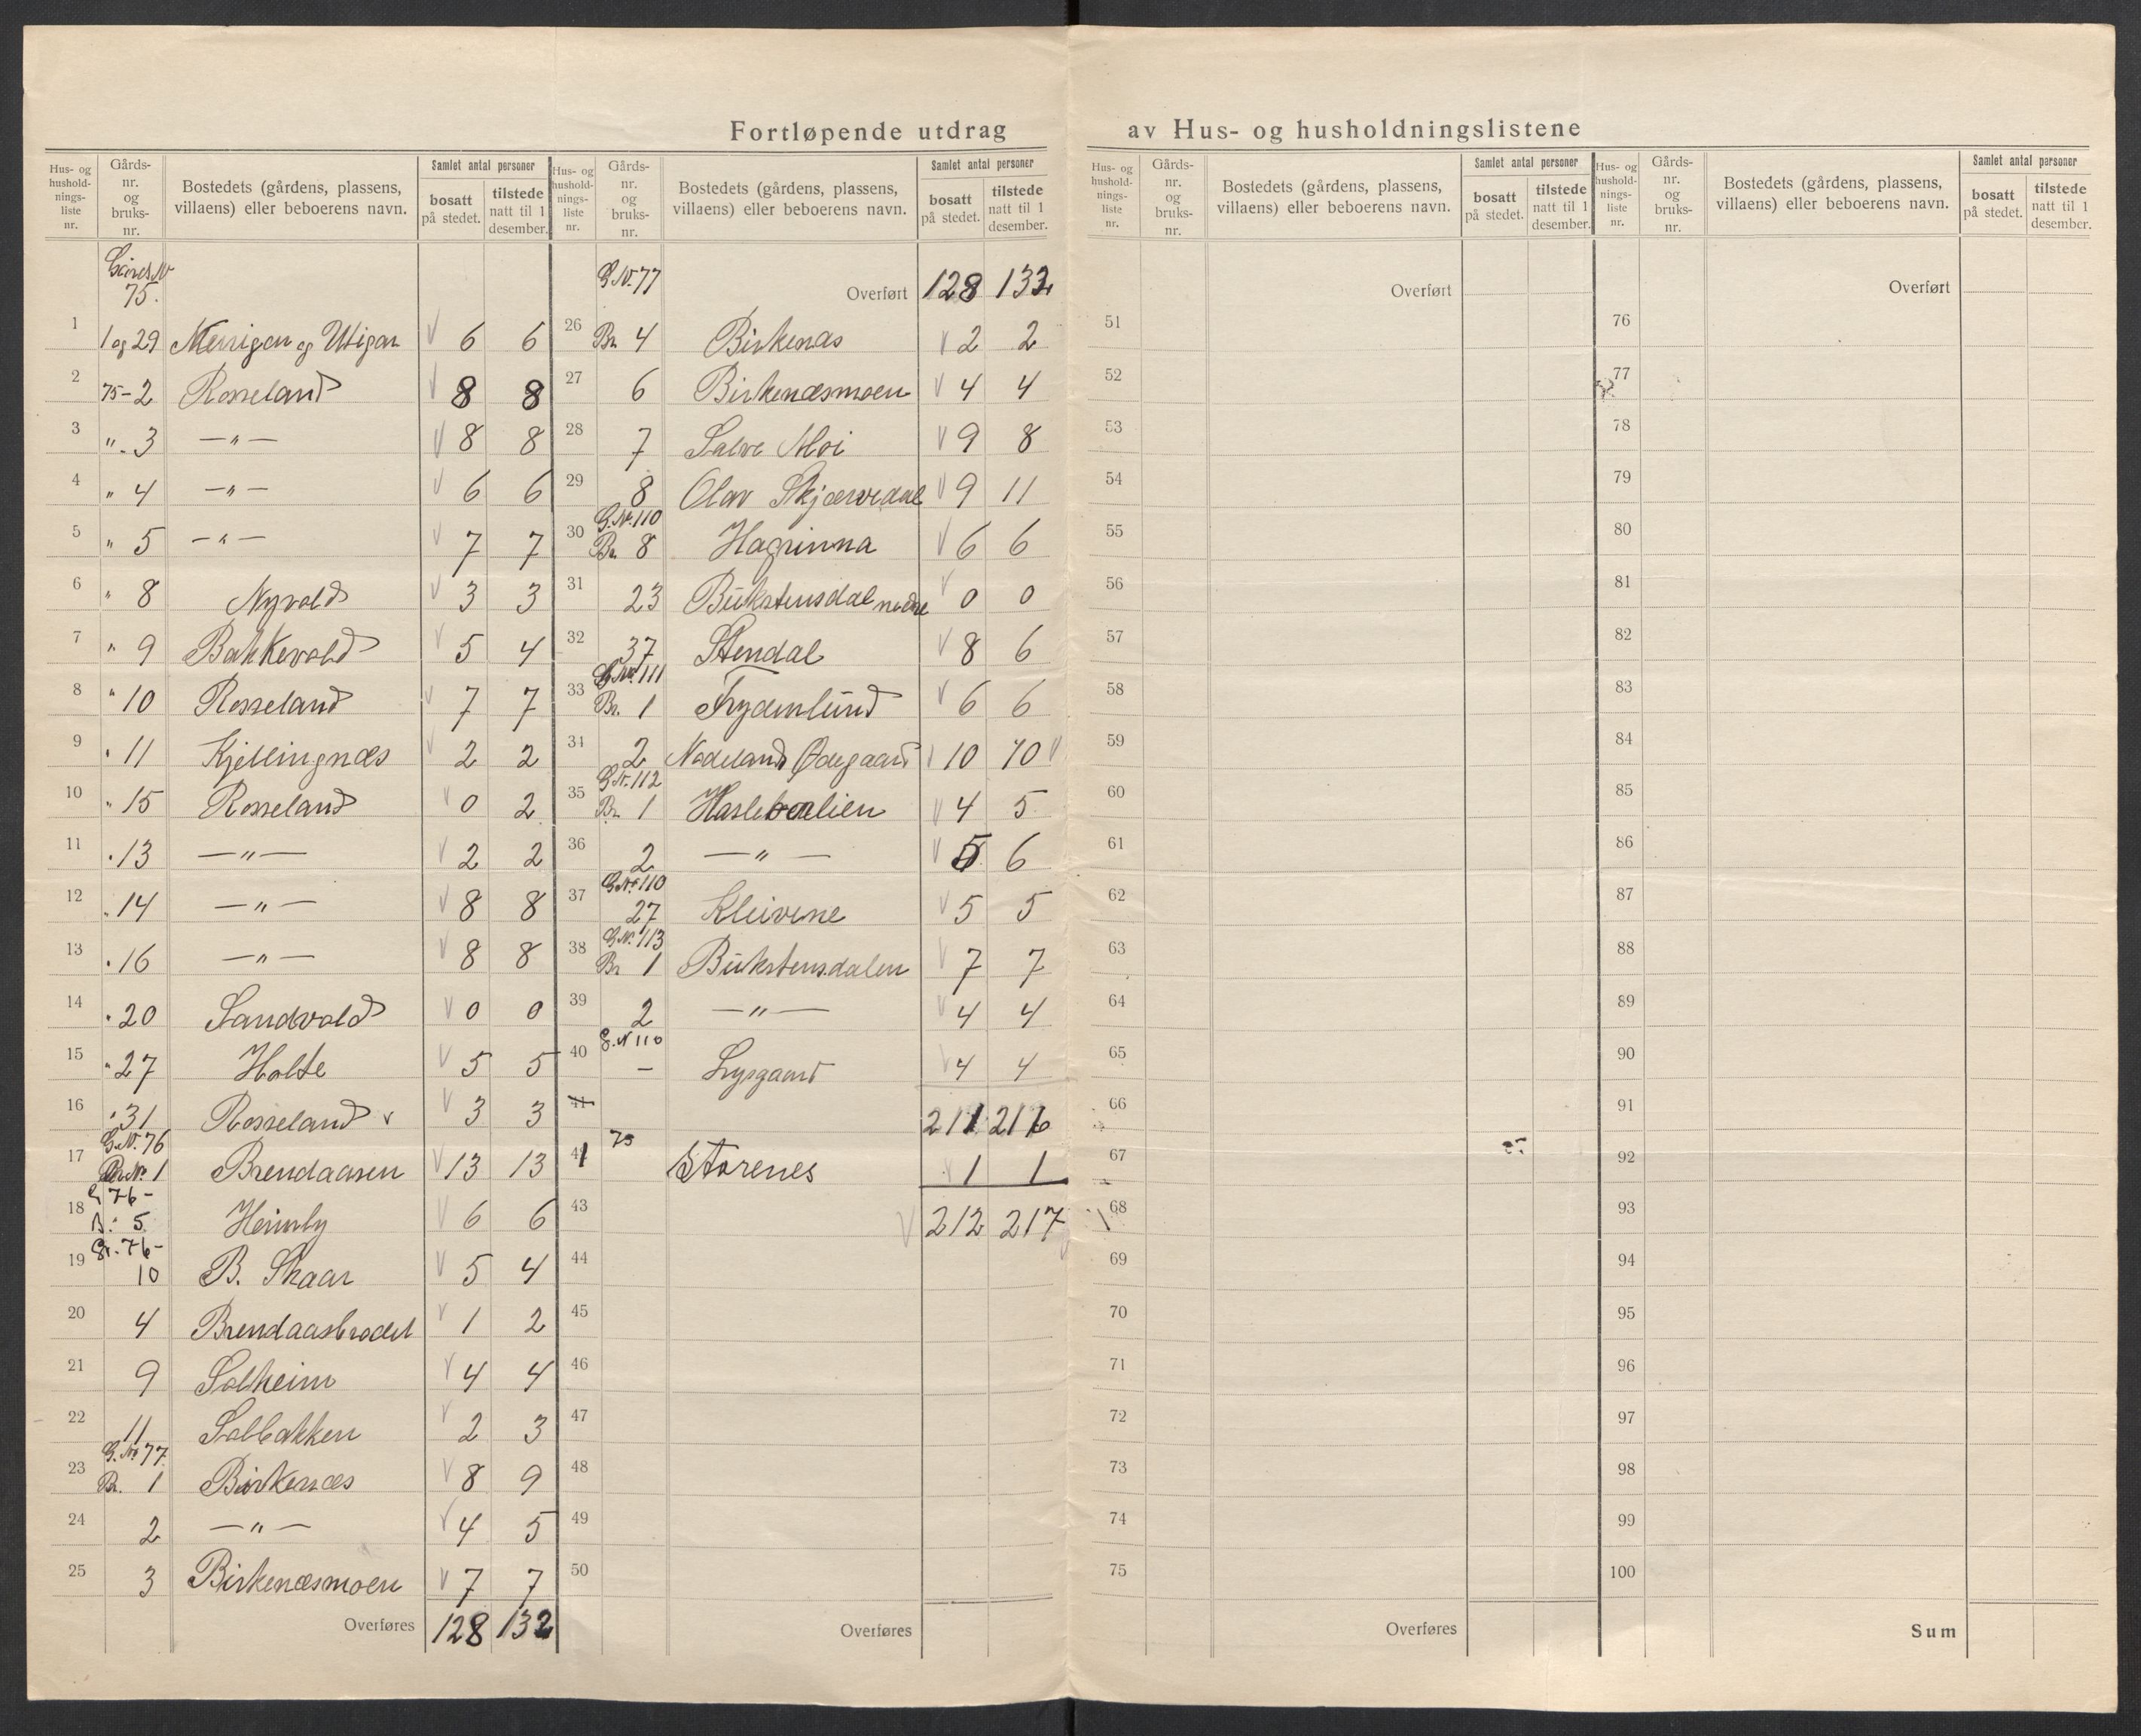 Fortløpende utdrag av Hus- og husholdningslistene
Hus- og hushold-nings-liste nr. | Gårds-nr. og bruks-nr. | Bostedets (gårdens, plassens, villaens) eller beboerens navn. | Samlet antal personer | bosatt på stedet. | tilstede natt til 1 desember.
Gårds N 75.
1 | 1 og 29 | og Utigar | 6 | 6
2 | 75-2 | Rosseland | 8 | 8
3 | " 3 | —"— | 8 | 8
4 | " 4 | —"— | 6 | 6
5 | " 5 | —"— | 7 | 7
6 | " 8 | Nyvold | 3 | 3
7 | " 9 | Bakkevold | 5 | 4
8 | " 10 | Rosseland | 7 | 7
9 | " 11 | Kjellingnæs | 2 | 2
10 | " 15 | Rosseland | 0 | 2
11 | " 13 | —"— | 2 | 2
12 | " 14 | —"— | 8 | 8
13 | " 16 | —"— | 8 | 8
14 | " 20 | Sandvold | 0 | 0
15 | " 27 | Holte | 5 | 5
16 | " 31 | Rosseland v | 3 | 3
17 | G.N. 76 Br.N. 1 | Brendaasen | 13 | 13
18 | G 76- B: 5 | Heimly | 6 | 6
19 | Gr. 76- 10 | B. Skaar | 5 | 4
20 | 4 | Brendaasbrodet | 1 | 2
21 | 9 | Solheim | 4 | 4
22 | 11 | Solbakken | 2 | 3
23 | G. No 77. Br. 1 | Birkenæs | 8 | 9
24 | 2 | —"— | 4 | 5
25 | 3 | Birkenæsmoen | 7 | 7
Overføres 128 132
Hus- og hushold-nings-liste nr. | Gårds-nr. og bruks-nr. | Bostedets (gårdens, plassens, villaens) eller beboerens navn. | Samlet antal personer | bosatt på stedet. | tilstede natt til 1 desember.
G.N. 77 | Overført | 128 | 132
26 | Br. 4 | Birkenæs | 2 | 2
27 | 6 | Birkenæsmoen | 4 | 4
28 | 7 | Salve Moi | 9 | 8
29 | 8 | Olav Skjærvedal | 9 | 11
30 | G.Nr. 110 Br. 8 | Hagrinna | 6 | 6
31 | 23 | Bukstensdal nedre | 0 | 0
32 | 37 | Stendal | 8 | 6
33 | G.No. 111 Br. 1 | Frydenlund | 6 | 6
34 | 2 | Nodeland Ødegaard | 10 | 10
35 | G.Nr. 112 Br. 1 | Haslebærlien | 4 | 5
36 | 2 | —"— | 5 | 6
37 | G.No. 110 27 | Kleivene | 5 | 5
38 | G.N. 113 Br. 1 | Bukstensdalen | 7 | 7
39 | 2 | —"— | 4 | 4
40 | G.N 110 - | Lysgaard | 4 | 4
41 | 211 | 216
41 | 75 | Storenes | 1 | 1
43 | 212 | 217
44
45
46
47
48
49
50
Overføres
Hus- og hushold-nings-liste nr. | Gårds-nr. og bruks-nr. | Bostedets (gårdens, plassens, villaens) eller beboerens navn. | Samlet antal personer | bosatt på stedet. | tilstede natt til 1 desember.
Overført
51
52
53
54
55
56
57
58
59
60
61
62
63
64
65
66
67
68
69
70
71
72
73
74
75
Overføres
Hus- og hushold-nings-liste nr. | Gårds-nr. og bruks-nr. | Bostedets (gårdens, plassens, villaens) eller beboerens navn. | Samlet antal personer | bosatt på stedet. | tilstede natt til 1 desember.
Overført
76
77
78
79
80
81
82
83
84
85
86
87
88
89
90
91
92
93
94
95
96
97
98
99
100
Sum